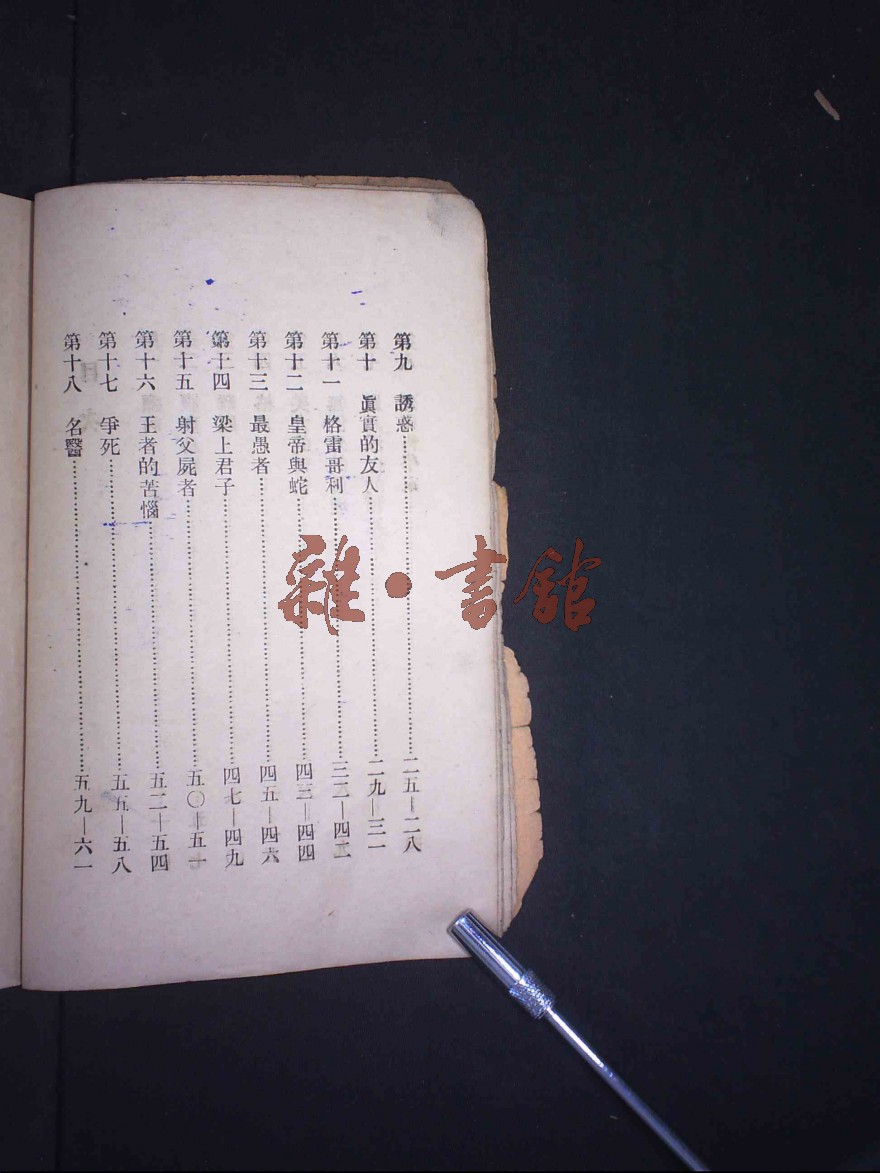 第九　誘惑…………二五—二八
第十　眞實的友人…………二九—三一
第十一　格雷哥利…………三二—四二
第十二　皇帝與蛇…………四三—四四
第十三　最愚者…………四五—四六
第十四　梁上君子…………四七—四九
第十五　射父屍者…………五〇—五一
第十六　王者的苦惱…………五二—五四
第十七　爭死…………五五—五八
第十八　名醫…………五九—六一
雜·書館